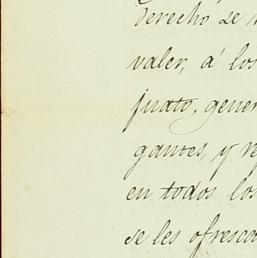 derecho se
valer, á los
juato, gener
gantes, y re
en todos los
se les ofresca